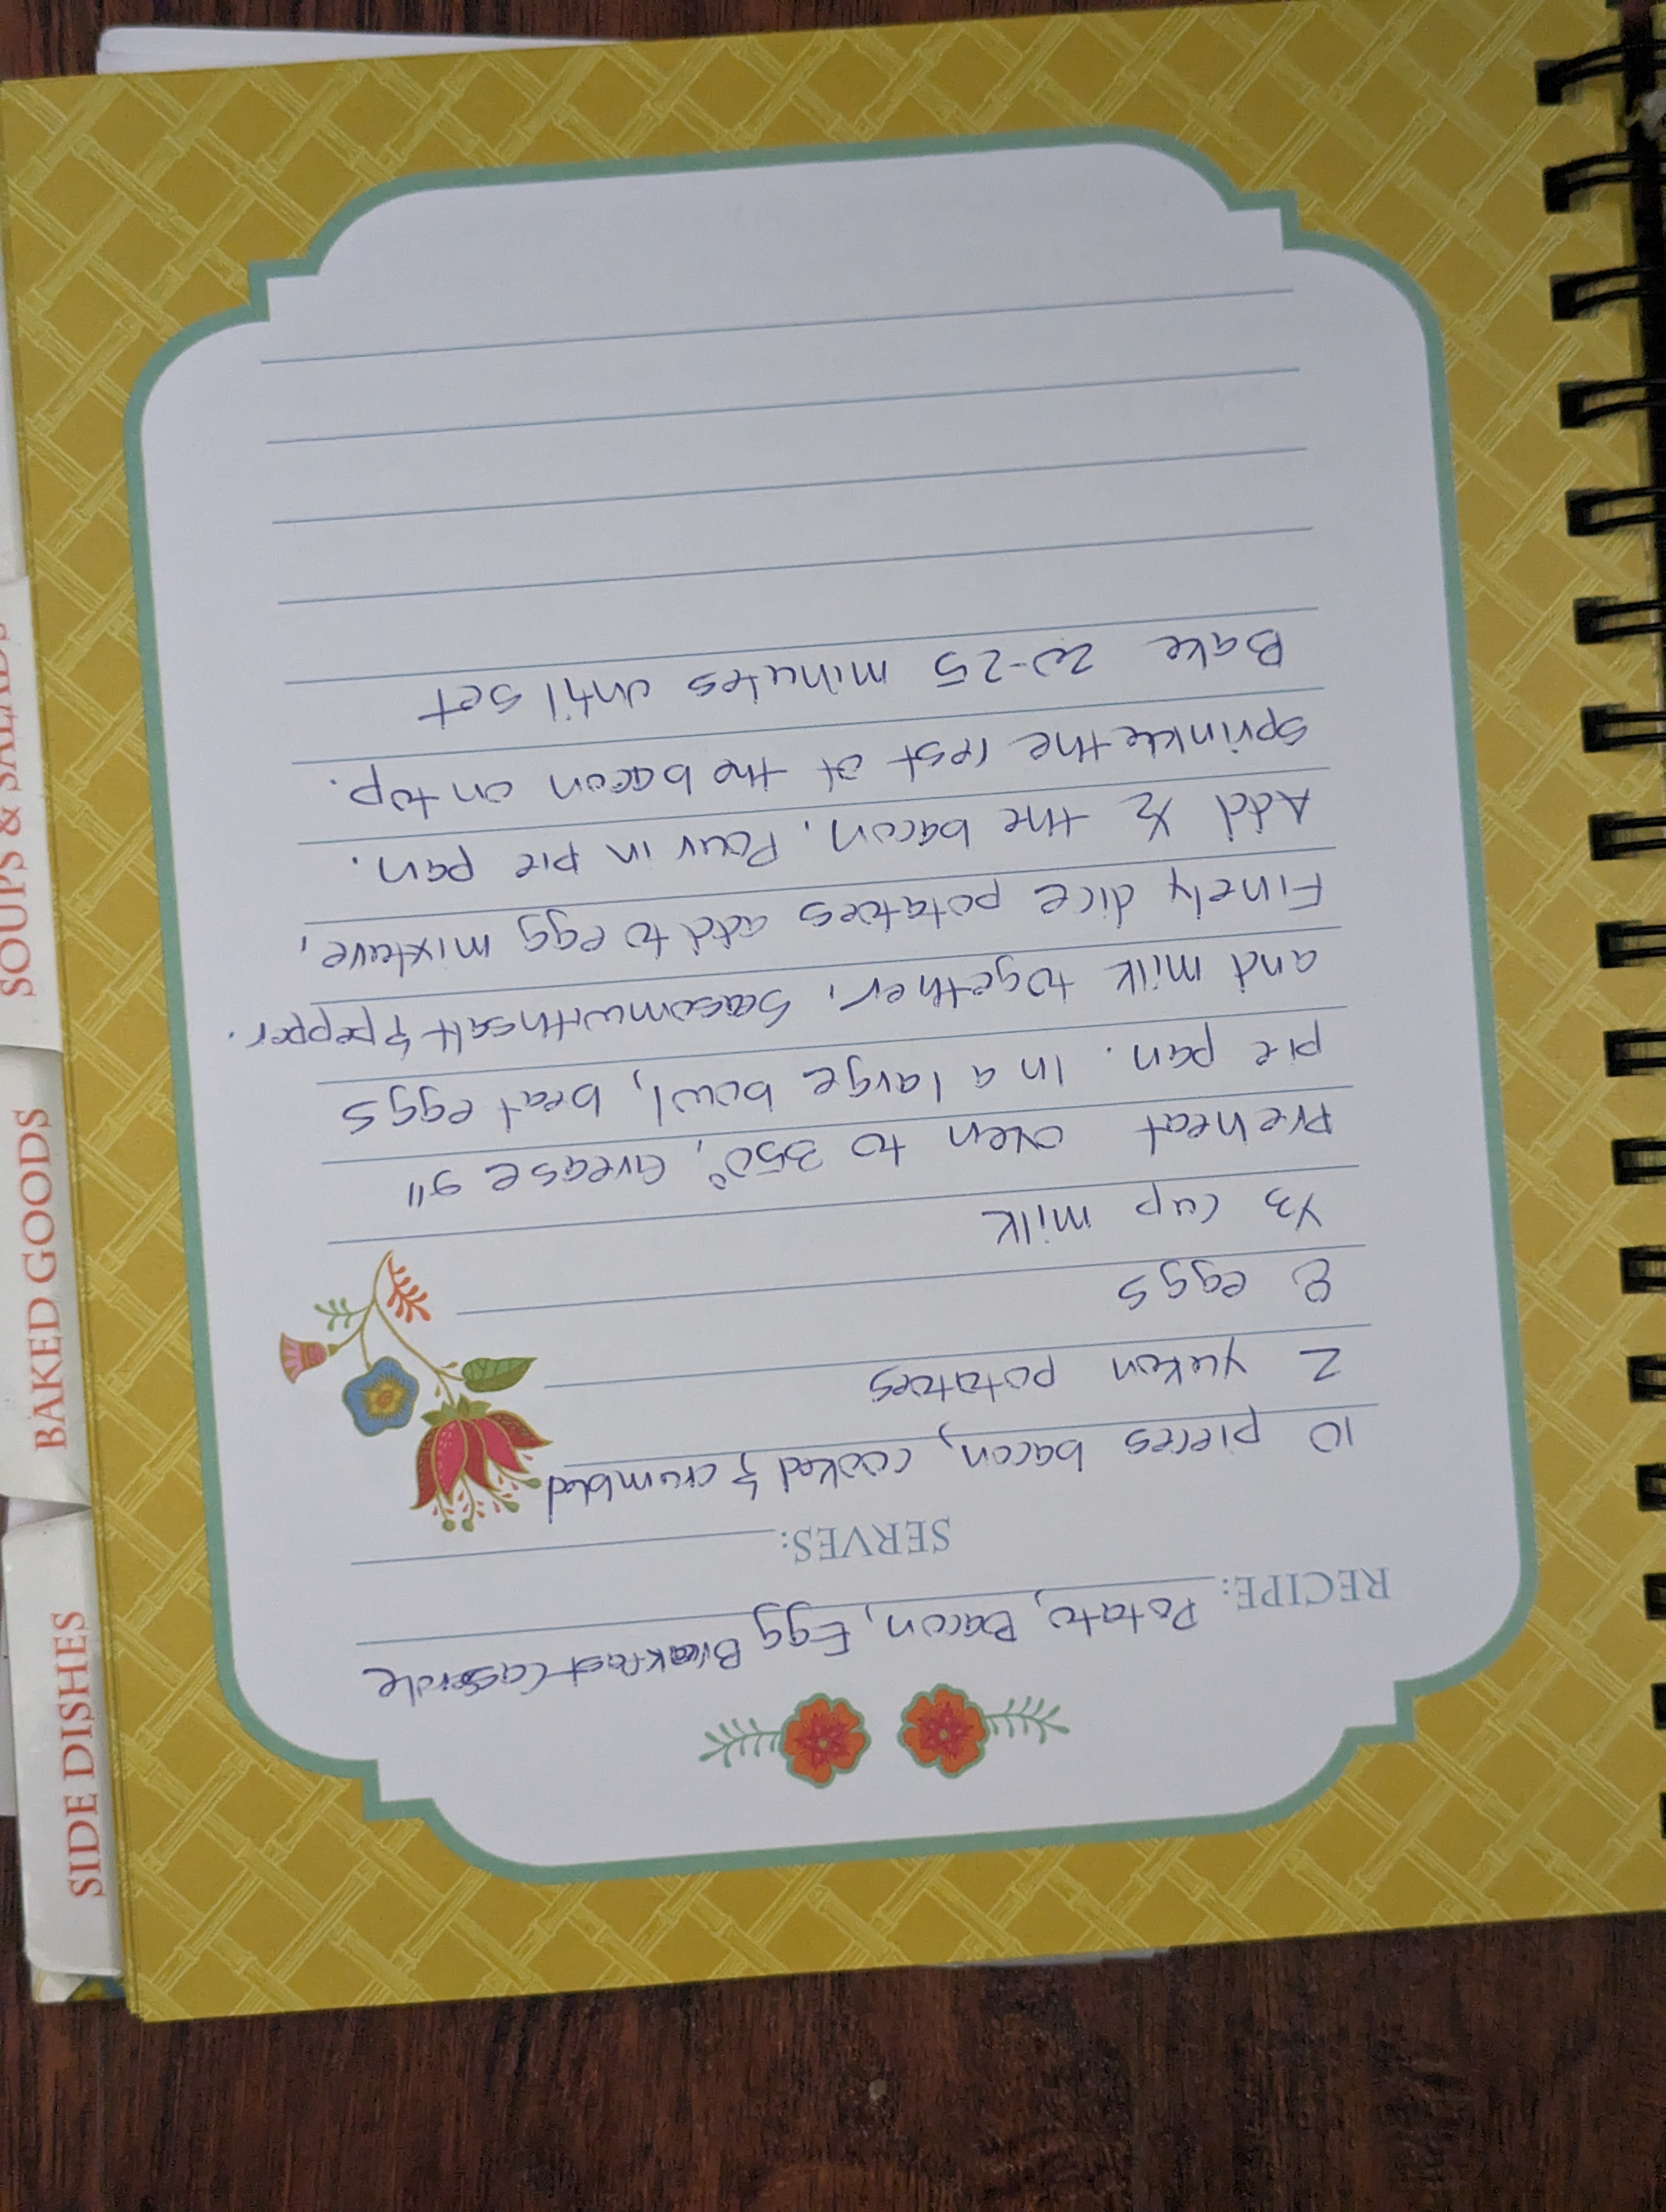 RECIPE: Potato, Bacon, Egg Breakfast Casserole
SERVES:
10 pieces bacon, cooked & crumbled
2 yukon potatoes
8 eggs
1/3 cup milk
Preheat oven to 350°, Grease 9"
pie pan. In a large bowl, beat eggs
and milk together. Season with salt & pepper.
Finely dice potatoes add to egg mixture,
Add 1/2 the bacon. Pour in pie pan.
Sprinkle the rest of the bacon on top.
Bake 20-25 minutes until set
SIDE DISHES
BAKED GOODS
SOUPS & SALADS